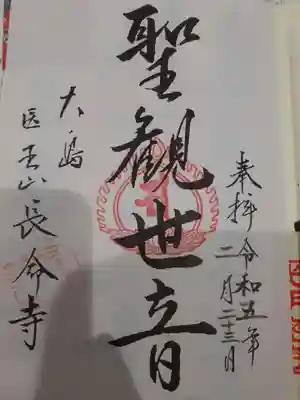 奉拝 令和五年
二月二十三日
聖観世音
大島
医王山長命寺